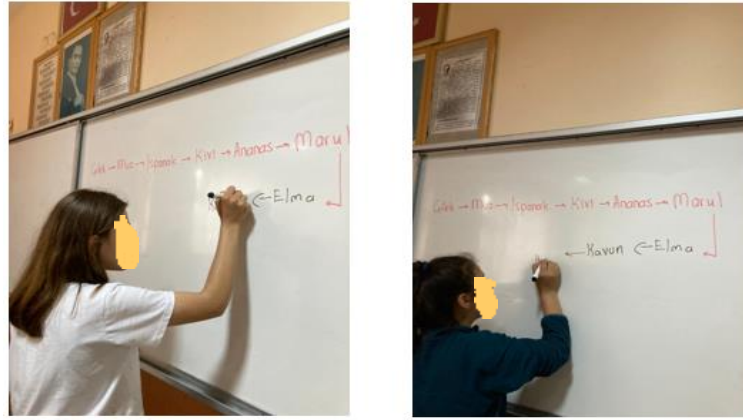 Muz → Ispanak → Kivi → Ananas → Marul
← Elma
Muz → Ispanak → Kivi → Ananas → Marul
← Kavun ← Elma